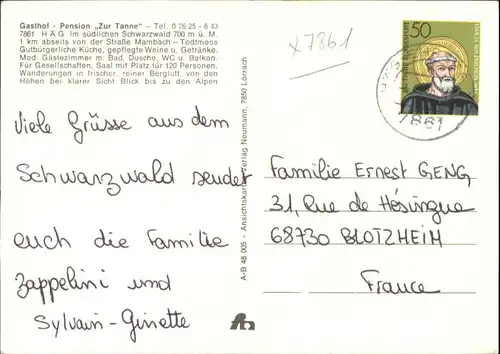 Gasthof - Pension „Zur Tanne" – Tel. 0 76 25 - 6 43
7861 HÄG Im südlichen Schwarzwald 700 m ü. M.
1 km abseits von der Straße Mambach – Todtmoos
Gutbürgerliche Küche, gepflegte Weine u. Getränke.
Mod. Gästezimmer m. Bad, Dusche, WC u. Balkon.
Für Gesellschaften, Saal mit Platz für 120 Personen.
Wanderungen in frischer, reiner Bergluft, von den
Höhen bei klarer Sicht Blick bis zu den Alpen
x7861
50
7861
Viele Grüsse aus dem
Schwarzwald sendet
euch die Familie
Zappelini und
Sylvain-Ginette
A-B 48 005 - Ansichtskarten-Verlag Neumann, 7850 Lörrach
Familie Ernest GENG
31, Rue de Hésingue
68730 BLOTZHEIM
France